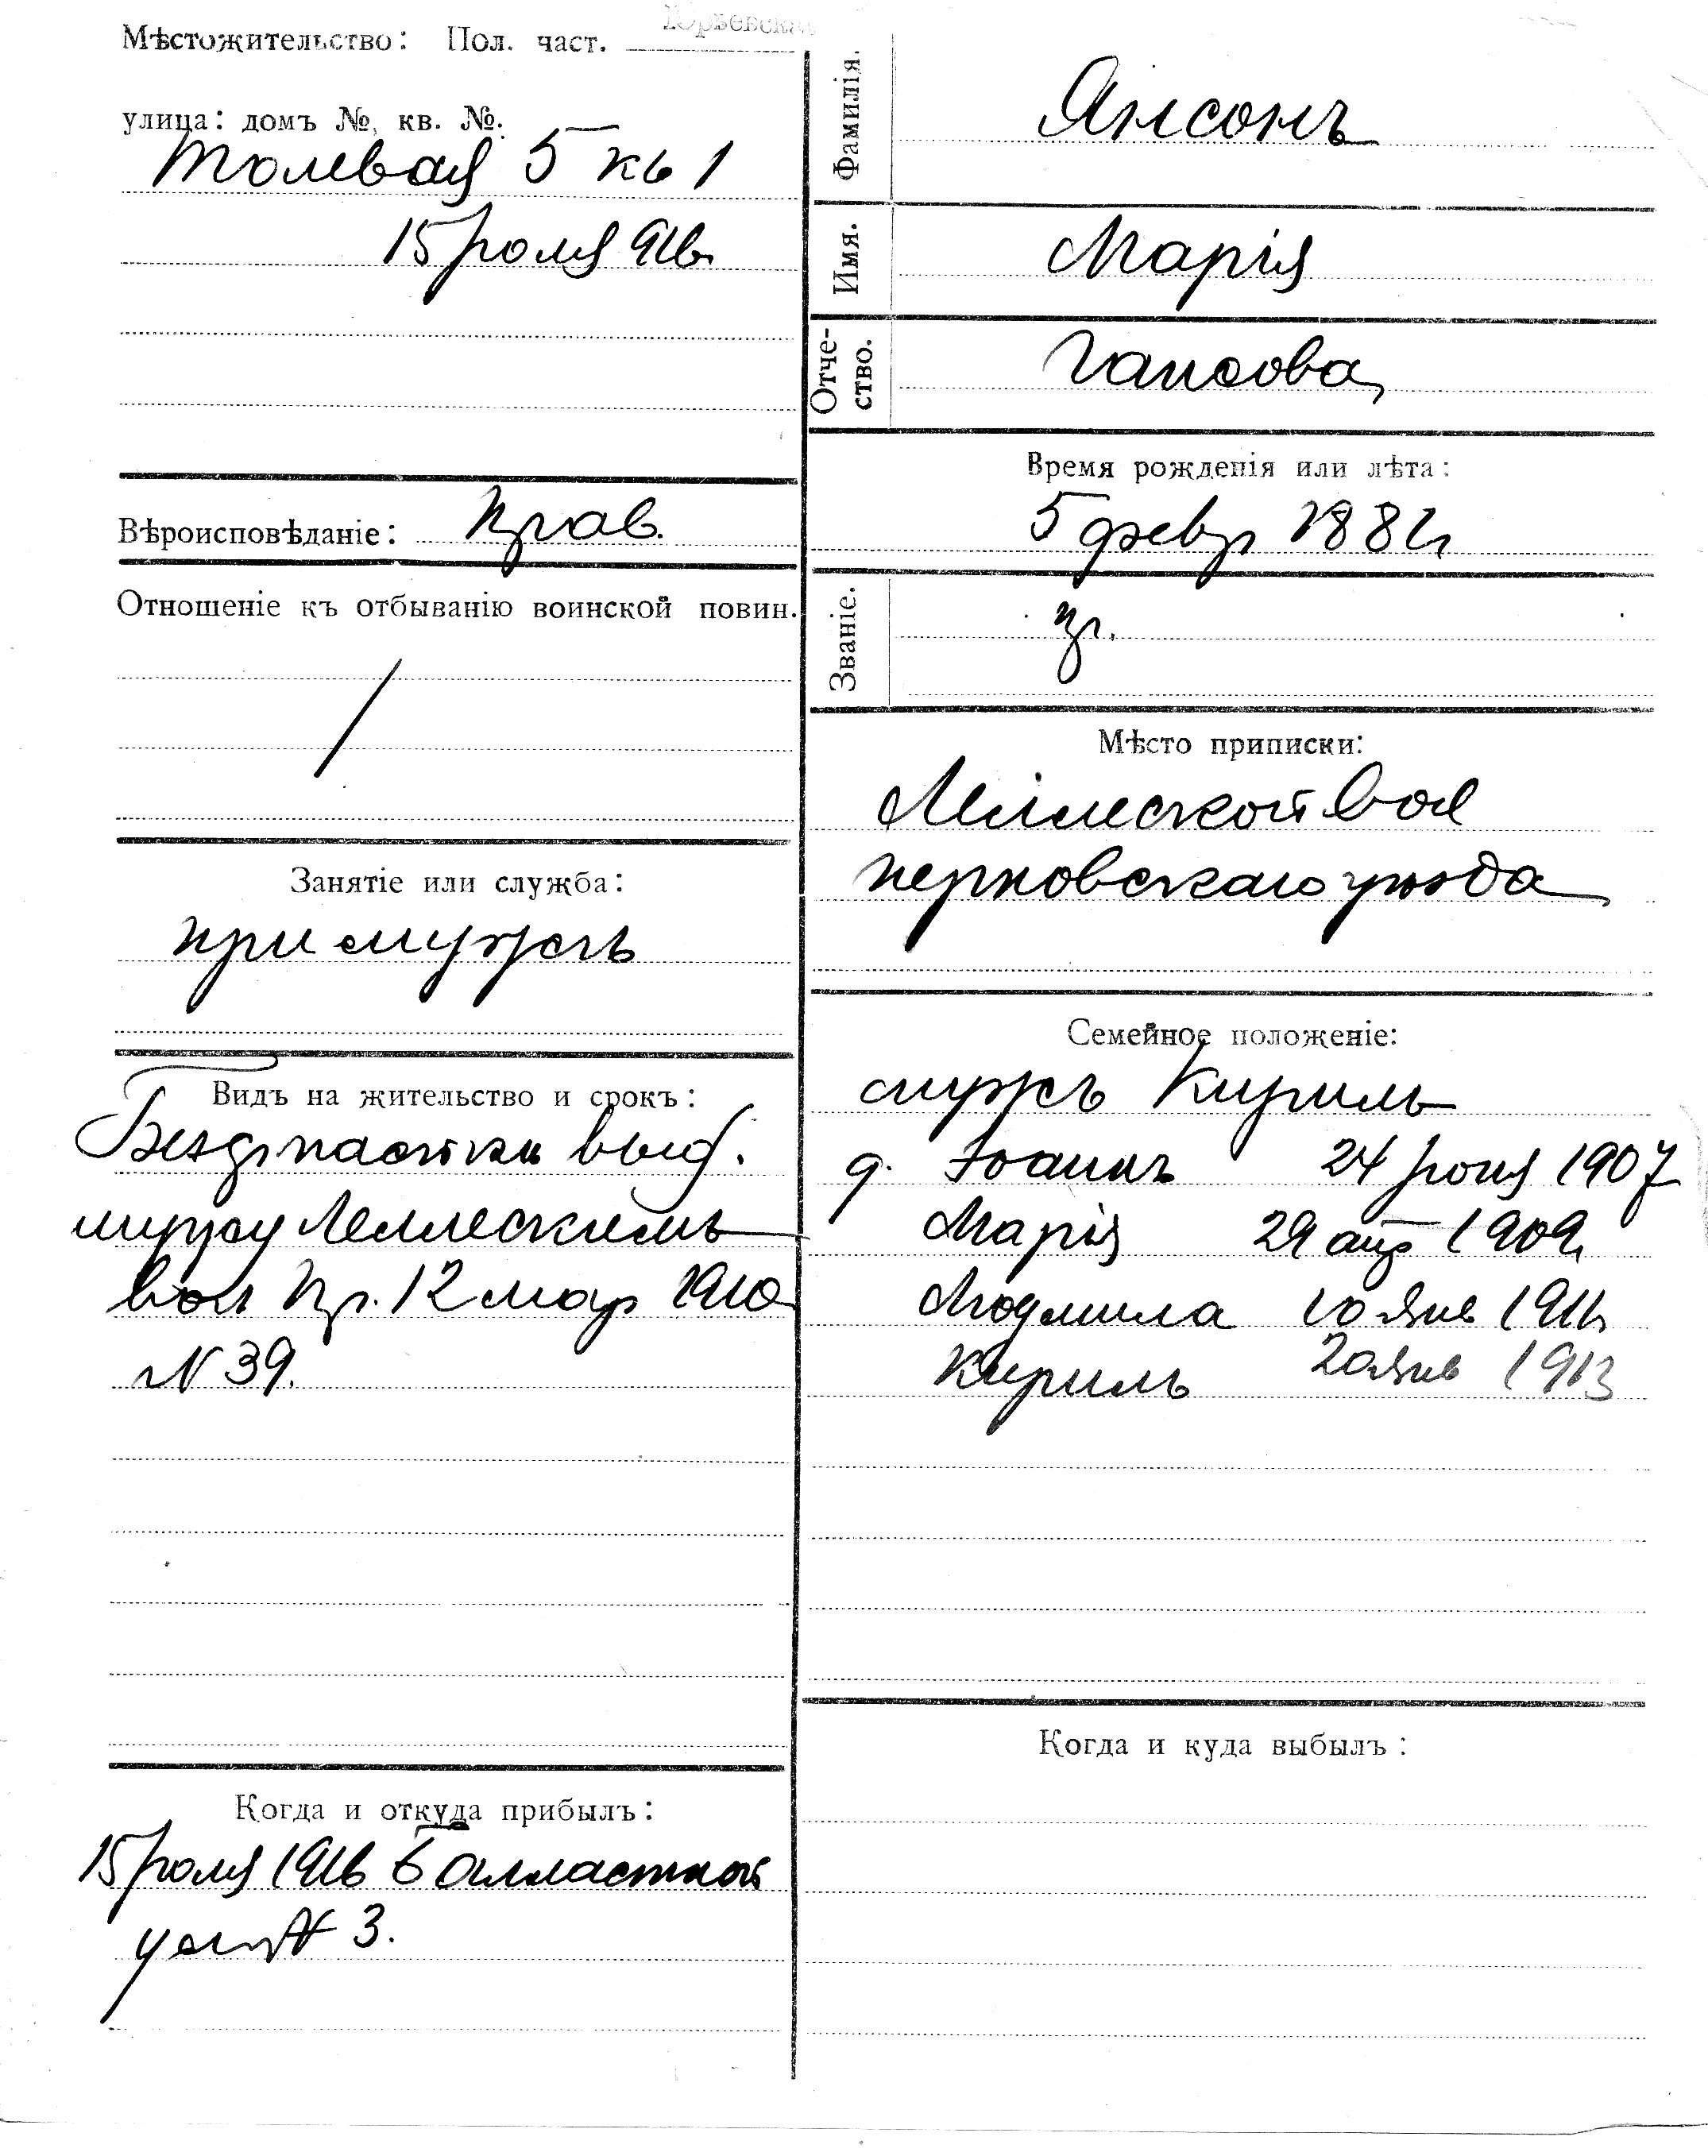 Мѣстожительство: Пол. част. Юрьевска
улица: домъ №, кв. №.
Толевая 5 кв 1
15 юля 916
Вѣроисповѣданіе: Прав.
Отношеніе къ отбыванію воинской повин.
/
Занятіе или служба:
при мужѣ
Видъ на жительство и срокъ:
выд.
мужу Леллескимъ
вол пр. 12 мар 1910
N 39.
Когда и откуда прибылъ:
15 юля 1916 Балластной
N 3.
Фамилія.
Янсонъ
Имя.
Марія
Отче-
ство.
Гансова
Время рожденія или лѣта:
5 февр 1882
Званіе.
кр.
Мѣсто приписки:
Леллеской вол
перновскаго уѣзда
Семейное положеніе:
мужъ Кирилъ
д. Іоаннъ 24 юня 1907
Марія 29 апр 1909
Людмила 10 янв 1911
Кирилъ 20 янв 1913
Когда и куда выбылъ: